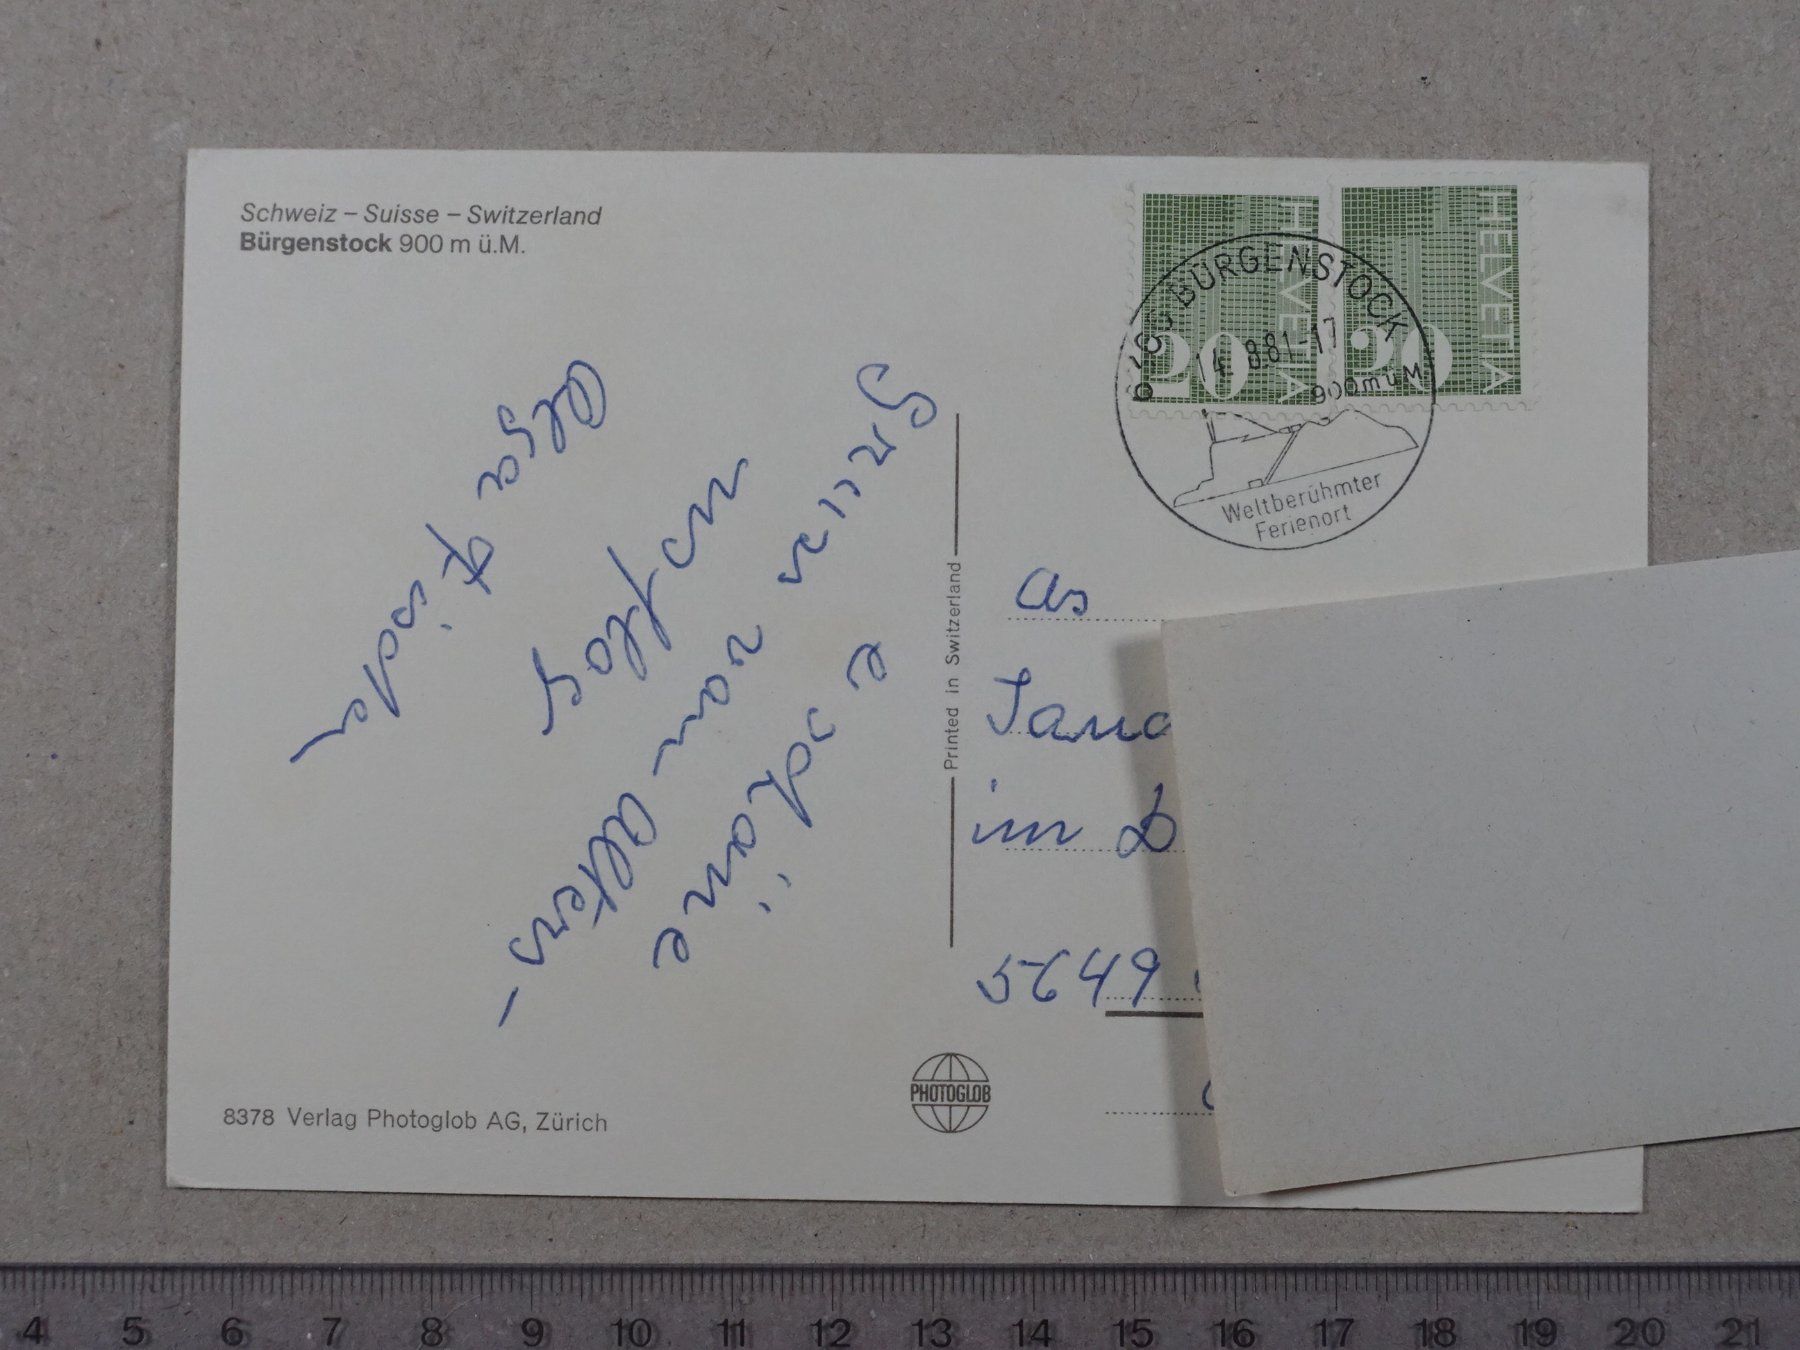 Schweiz – Suisse – Switzerland
Bürgenstock 900 m ü.M.
HELVETIA
20
HELVETIA
20
BÜRGENSTOCK
14. 8.81-17
900 m ü M
Weltberühmter
Ferienort
e schöne
Gruss vom Alters-
usflog
Olga
Printed in Switzerland
as
im D
5649
PHOTOGLOB
8378 Verlag Photoglob AG, Zürich
4 5 6 7 8 9 10 11 12 13 14 15 16 17 18 19 20 21